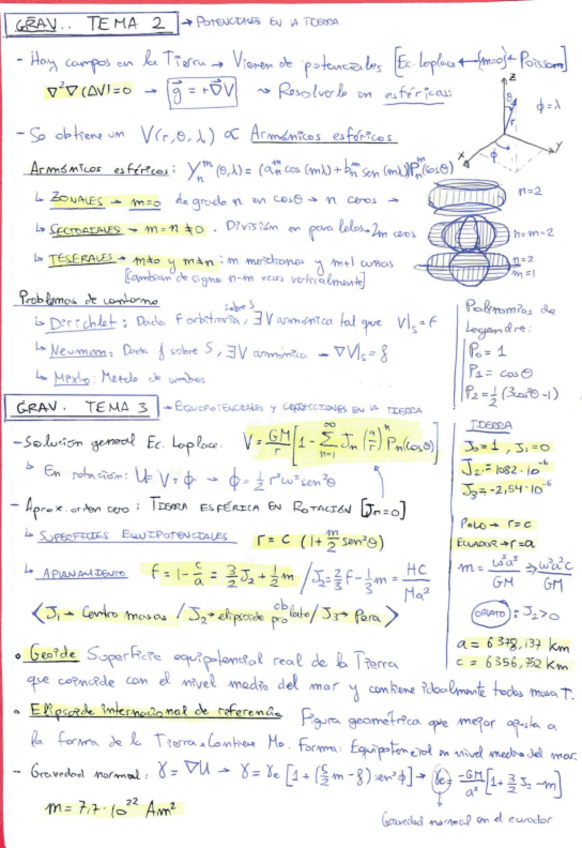 GRAV.. TEMA 2 → POTENCIALES EN LA TIERRA
- Hay campos en la Tierra → Vienen de potenciales [Ec. Laplace ←(m=0)← Poisson]
∇²∇(ΔV)=0 → g⃗ = +∇⃗V ~ Resolverlo en esféricas:
z
θ
r
ϕ=λ
x
ϕ
y
- Se obtiene un V(r,θ,λ) ∝ Armónicos esféricos
Armónicos esféricos: Yₙᵐ(θ,λ) = (aₙᵐ cos(mλ) + bₙᵐ sen(mλ)) Pₙᵐ(cosθ)
↳ ZONALES → m=0 de grado n en cosθ → n ceros →
n=2
↳ SECTORIALES → m=n≠0. División en paralelos → 2m ceros
n=m=2
↳ TESERALES → m≠0 y m≠n: m meridianos y m+1 curvas
[cambian de signo n-m veces verticalmente]
n=2
m=1
Problemas de contorno
↳ Dirichlet: Dada f arbitraria, sobre S ∃V armónica tal que V|s=f
↳ Neumann: Dada g sobre S, ∃V armónica → ∇V|s=g
↳ Mixto: Mezcla de ambos
Polinomios de
Legendre:
P₀=1
P₁=cosθ
P₂=½(3cos²θ-1)
GRAV. TEMA 3 → EQUIPOTENCIALES Y CORRECCIONES EN LA TIERRA
- Solución general Ec. Laplace. V=GM/r [1 - ∑ₙ₌₁^∞ Jₙ (a/r)ⁿ Pₙ(cosθ)]
↳ En rotación: U=V+ϕ → ϕ=½ r²ω²sen²θ
- Aprox. orden cero: TIERRA ESFÉRICA EN ROTACIÓN [Jn=0]
↳ SUPERFICIES EQUIPOTENCIALES r=c (1+m/2 sen²θ)
↳ APLANAMIENTO f=1-c/a=3/2 J₂+½m / J₂=2/3 f-1/3 m = HC/Ma²
<J₁→Centro masas / J₂→elipsoide oblato pro / J₃→Pera>
TIERRA
J₀=1, J₁=0
J₂=1082·10⁻⁶
J₃=-2,54·10⁻⁶
POLO → r=c
ECUADOR → r=a
m=ω²a³/GM ⇒ ω²a²c/GM
OBLATO: J₂>0
a = 6378,137 km
c = 6356,752 km
• Geoide Superficie equipotencial real de la Tierra
que coincide con el nivel medio del mar y contiene idealmente toda masa T.
• Elipsoide internacional de referencia Figura geométrica que mejor ajusta a
la forma de la Tierra. Contiene Mo. Forma: Equipotencial en nivel medio del mar.
- Gravedad normal: γ=∇U → γ=γe [1+(5/2 m-f) sen²ϕ] → γe=-GM/a² [1+3/2 J₂-m]
m = 7,7·10²² Am²
Gravedad normal en el ecuador